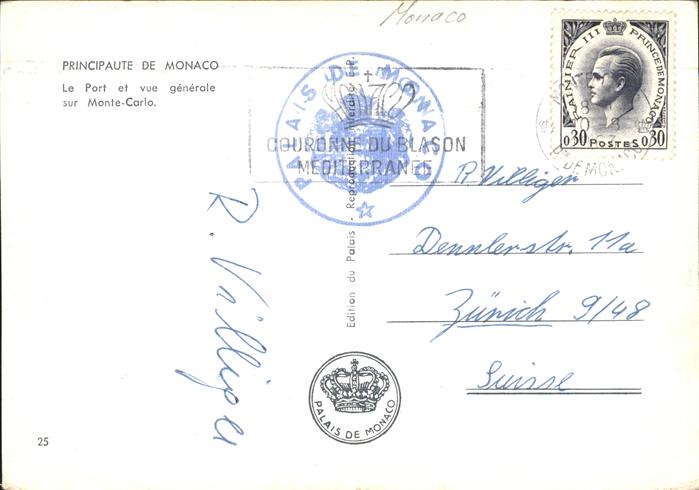 Monaco
PRINCIPAUTE DE MONACO
Le Port et vue générale
sur Monte-Carlo.
PALAIS DE MONACO
COURONNE DU BLASON
MEDITERRANEE
RAINIER III PRINCE DE MONACO
0,30 POSTES 0,30
DE MONACO
R. Villiger
Dennlerstr. 11a
Zürich 9/48
Suisse
R. Villiger
Edition du Palais - Reproduction Interdite
PALAIS DE MONACO
25